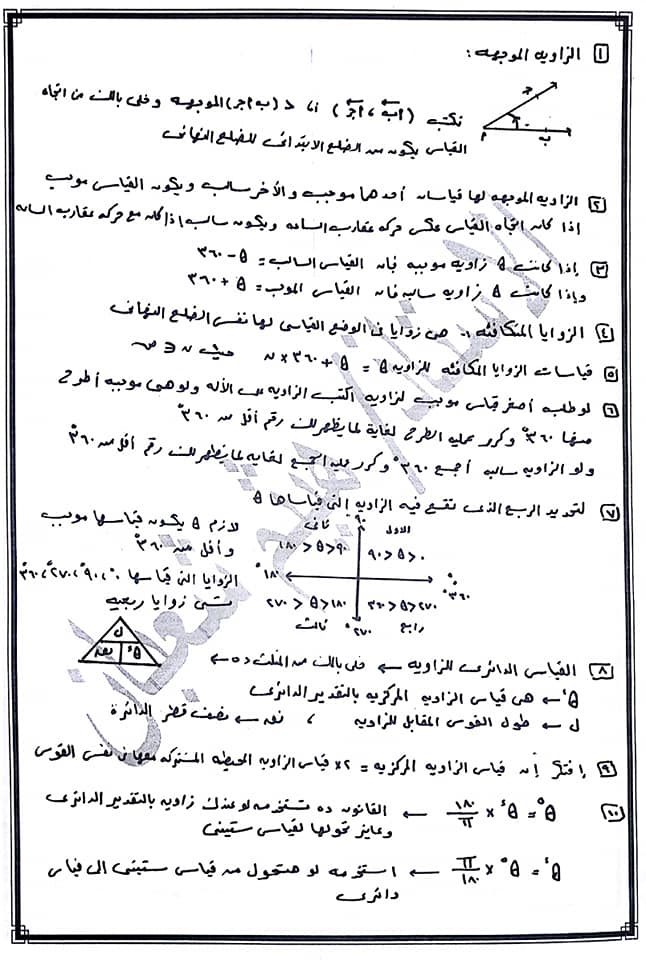 ١ الزاويه الموجهه :
نكتب ( أب ، أجـ ) أ، < (ب أجـ) الموجهه وخلى بالك من اتجاه
القياس يكون من الضلع الابتدائى للضلع النهائى
أ ب جـ
٢ الزاويه الموجهه لها قياسان أحدهما موجب والأخر سالب ويكون القياس موجب
إذا كان اتجاه القياس عكس حركه عقارب الساعه ويكون سالب إذا كان مع حركه عقارب الساعه
٣ إذا كانت θ زاويه موجبه فإن القياس السالب = θ - ٣٦٠
وإذا كانت θ زاويه سالبه فإن القياس الموجب = θ + ٣٦٠
٤ الزوايا المتكافئه :- هى زوايا فى الوضع القياسى لها نفس الضلع النهائى
٥ قياسات الزوايا المكافئه للزاويه θ = θ + ٣٦٠ × ن حيث ن ∈ ص
٦ لو طلب أصغر قياس موجب لزاويه اكتب الزاويه على الأله ولو هى موجبه أطرح
منها ٣٦٠° وكرر عمليه الطرح لغاية لما يظهرلك رقم أقل من ٣٦٠°
ولو الزاويه سالبه أجمع ٣٦٠° وكرر عمليه الجمع لغايه لما يظهرلك رقم أقل من ٣٦٠°
٧ لتحديد الربع الذى تقع فيه الزاويه التى قياسها θ
لازم θ يكون قياسها موجب
وأقل من ٣٦٠°
الزوايا التى قياسها ٠°، ٩٠°، ٢٧٠°، ٣٦٠°
تسمى زوايا ربعيه
٩٠°
ثانى الاول
٩٠ < θ < ١٨٠ ٠ < θ < ٩٠
١٨٠° ٠° ٣٦٠°
١٨٠ < θ < ٢٧٠ ٢٧٠ < θ < ٣٦٠
ثالث رابع
٢٧٠°
ل
θء نق
٨ القياس الدائرى للزاويه ← خلى بالك من المثلث ده ←
θء ← هى قياس الزاويه المركزيه بالتقدير الدائرى
ل ← طول القوس المقابل للزاويه ، نق ← نصف قطر الدائرة
٩ إفتكر أن قياس الزاويه المركزيه = ٢× قياس الزاويه المحيطه المشتركه معها فى نفس القوس
١٠ θ° = θء × ١٨٠/π ← القانون ده تستخدمه لو عندك زاويه بالتقدير الدائرى
وعايز تحولها لقياس ستينى
θء = θ° × π/١٨٠ ← استخدمه لو هتحول من قياس ستينى الى قياس
دائرى